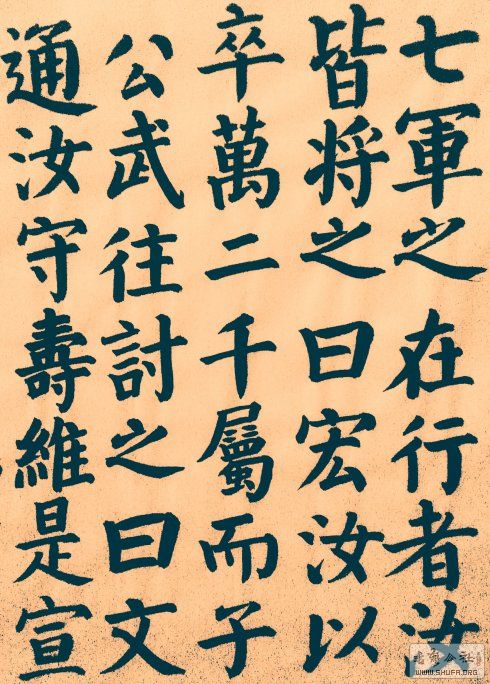 七軍之在行者汝
皆將之曰宏汝以
卒萬二千屬而子
公武往討之曰文
通汝守壽維是宣
WWW.SHUFA.ORG